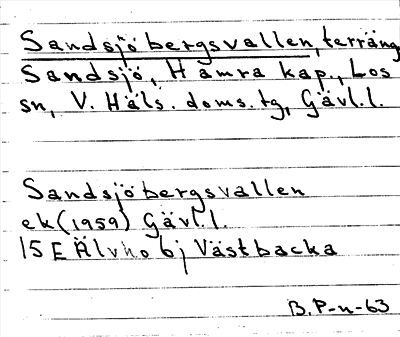 Sandsjöbergsvallen, terräng
Sandsjö, Hamra kap., Los
sn, V. Häls. doms. tg, Gävl. l.
Sandsjöbergsvallen
ek (1959) Gävl. l.
15 E Älvho 6j Västbacka
B. P-n-63